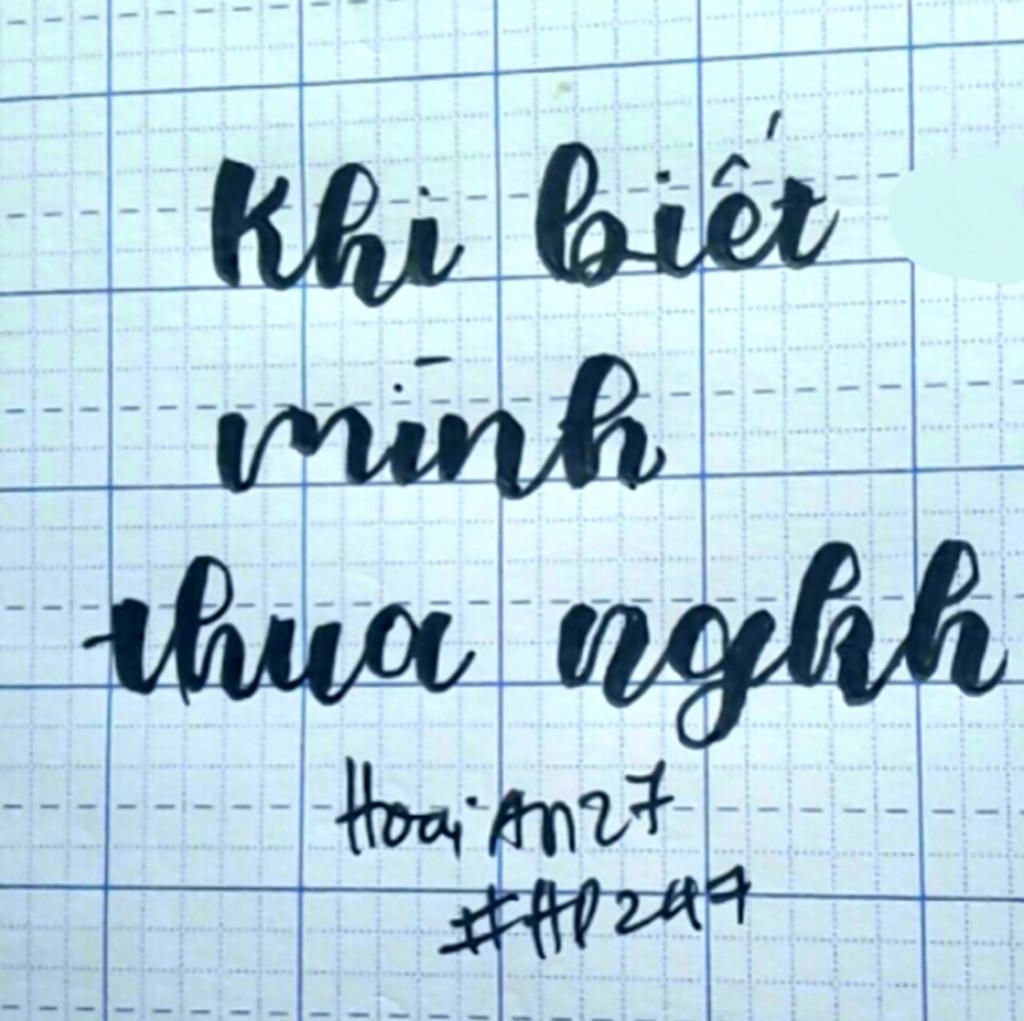 Khi biết
mình
thua ngkh
Hoài An27
#HP247